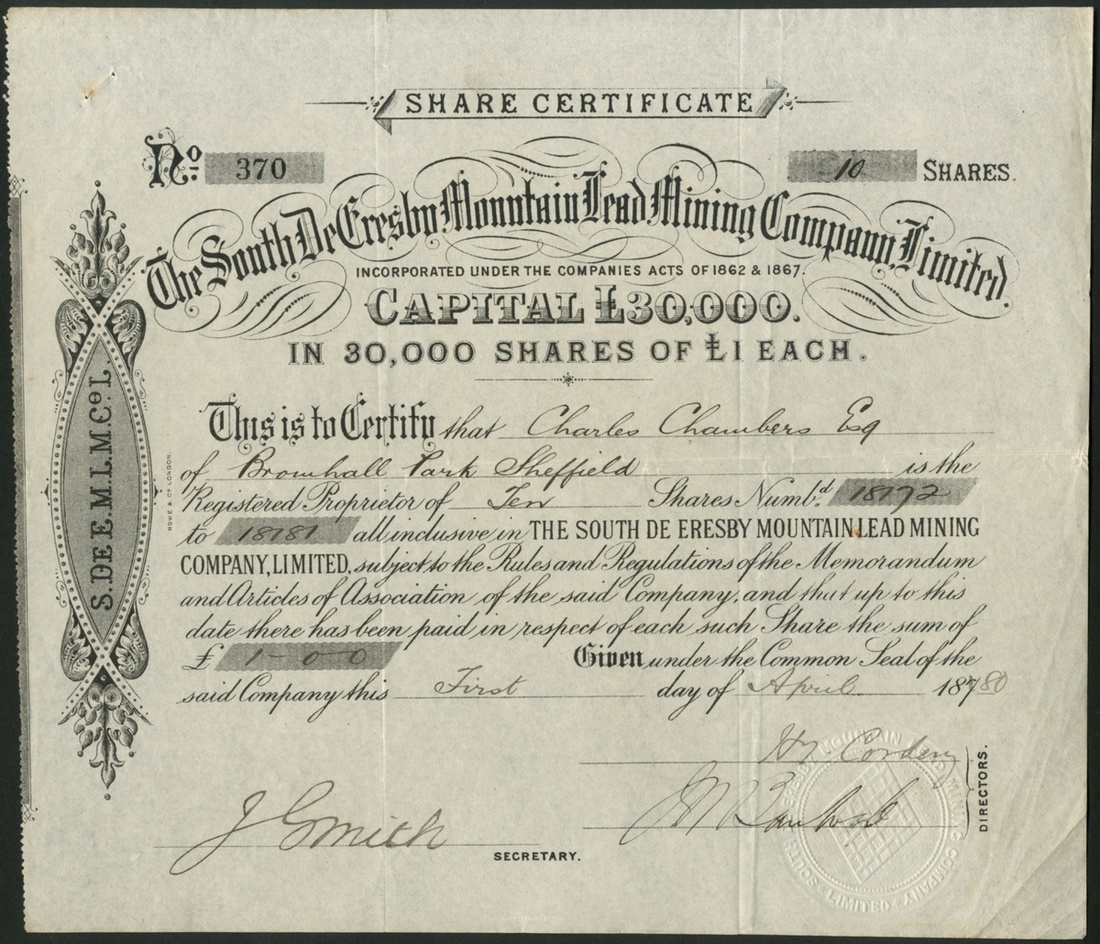 SHARE CERTIFICATE
No. 370
10 SHARES.
The South De Eresby Mountain Lead Mining Company, Limited.
INCORPORATED UNDER THE COMPANIES ACTS OF 1862 & 1867.
CAPITAL £30,000.
IN 30,000 SHARES OF £1 EACH.
S. DE E. M. L. M. Co. L.
ROWE & Co. LONDON.
This is to Certify that Charles Chambers Esq
of Bromhall Park Sheffield is the
Registered Proprietor of Ten Shares Numbd. 18172
to 18181 all inclusive in THE SOUTH DE ERESBY MOUNTAIN LEAD MINING
COMPANY, LIMITED, subject to the Rules and Regulations of the Memorandum
and Articles of Association of the said Company, and that up to this
date there has been paid in respect of each such Share the sum of
£ 1-0-0 Given under the Common Seal of the
said Company this First day of April 1880
H. Cordery
J M
DIRECTORS.
J Smith
SECRETARY.
SOUTH DE ERESBY MOUNTAIN LEAD MINING COMPANY LIMITED